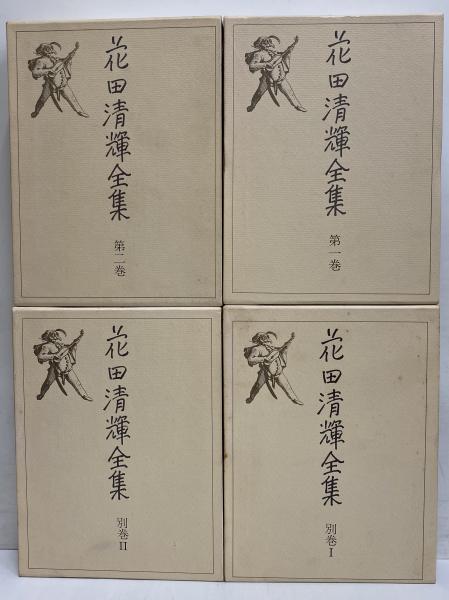 花田清輝全集
第二巻
花田清輝全集
第一巻
花田清輝全集
別巻II
花田清輝全集
別巻I